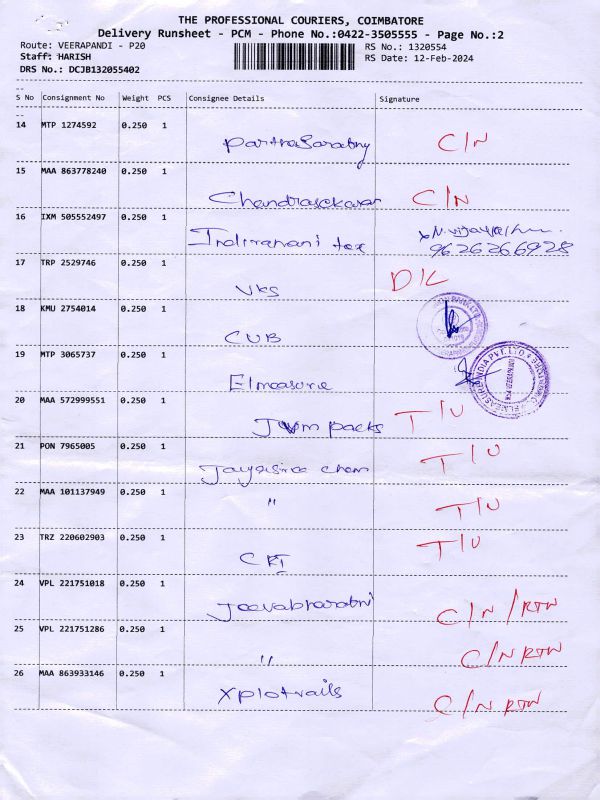 THE PROFESSIONAL COURIERS, COIMBATORE
Delivery Runsheet - PCM - Phone No.:0422-3505555 - Page No.:2
Route: VEERAPANDI - P20 RS No.: 1320554
Staff: HARISH RS Date: 12-Feb-2024
DRS No.: DCJB132055402
S No Consignment No Weight PCS Consignee Details Signature
14 MTP 1274592 0.250 1 Parthasarathy C/N
15 MAA 863778240 0.250 1 Chandrasekaran C/N
16 IXM 505552497 0.250 1 Indiranani tex
9626266928
17 TRP 2529746 0.250 1 VKS D/L
18 KMU 2754014 0.250 1 CUB
19 MTP 3065737 0.250 1 Elmeasure
20 MAA 572999551 0.250 1 packs T/U
21 PON 7965005 0.250 1 Jayasree chem T/U
22 MAA 101137949 0.250 1 " T/U
23 TRZ 220602903 0.250 1 CRI T/U
24 VPL 221751018 0.250 1 Jeevabharathi C/N/RTN
25 VPL 221751286 0.250 1 " C/N RTN
26 MAA 863933146 0.250 1 Xplotrails C/N RTN